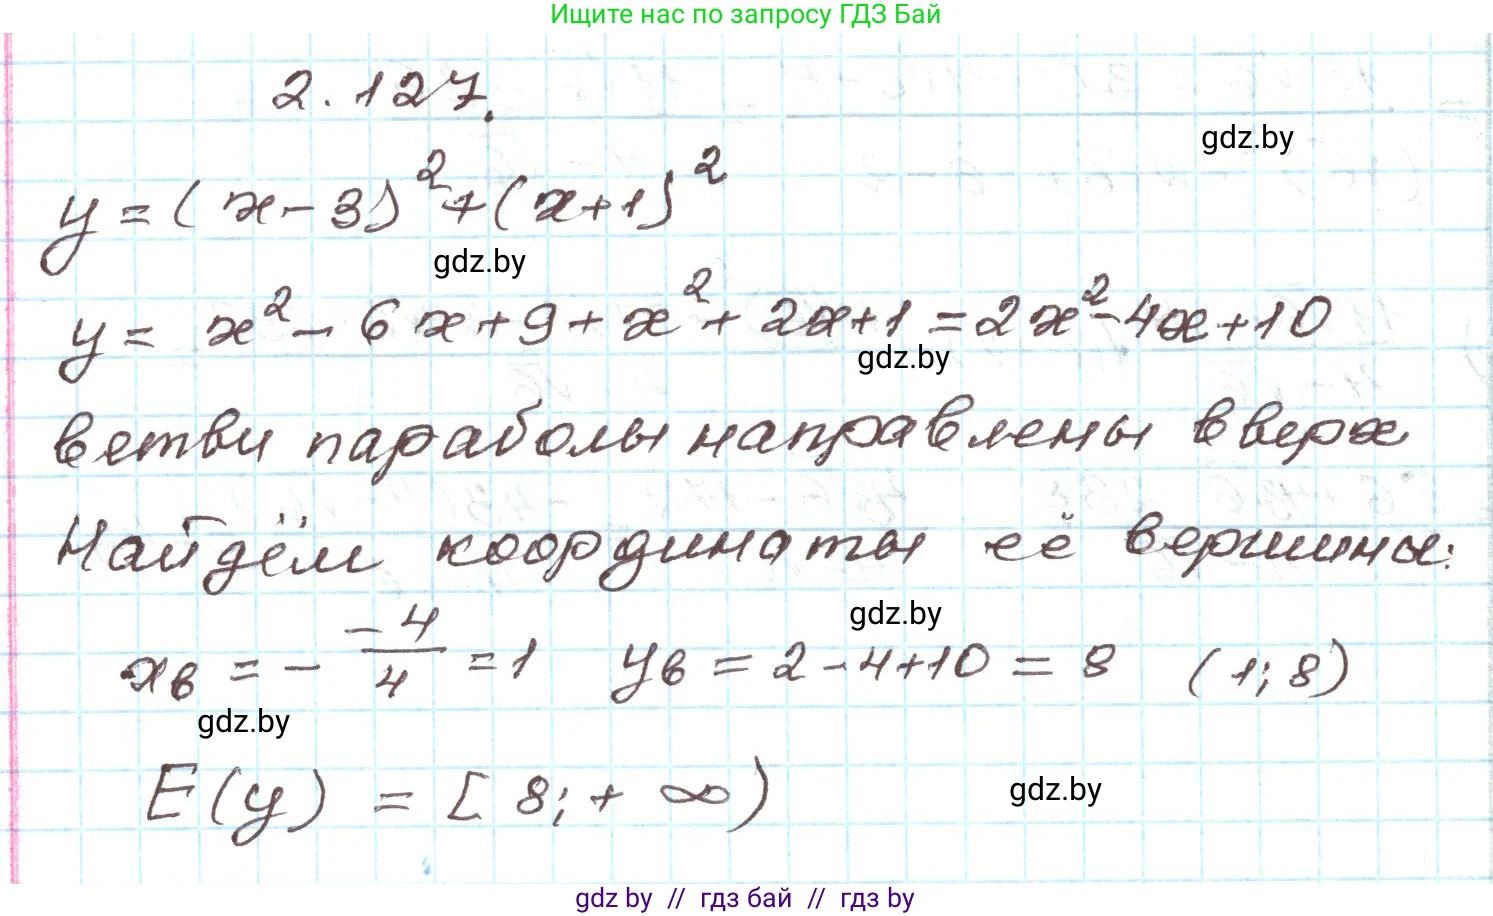 Ищите нас по запросу ГДЗ Бай
2.127.
gdz.by
y = (x - 3)² + (x+1)²
gdz.by
y = x² - 6x + 9 + x² + 2x+1 = 2x² - 4x + 10
gdz.by
ветви параболы направлены вверх
Найдём координаты её вершины:
gdz.by
xв = - -4/4 = 1 yв = 2 - 4 + 10 = 8 (1; 8)
gdz.by
E(y) = [8; + ∞)
gdz.by
gdz by // гдз бай // гдз by